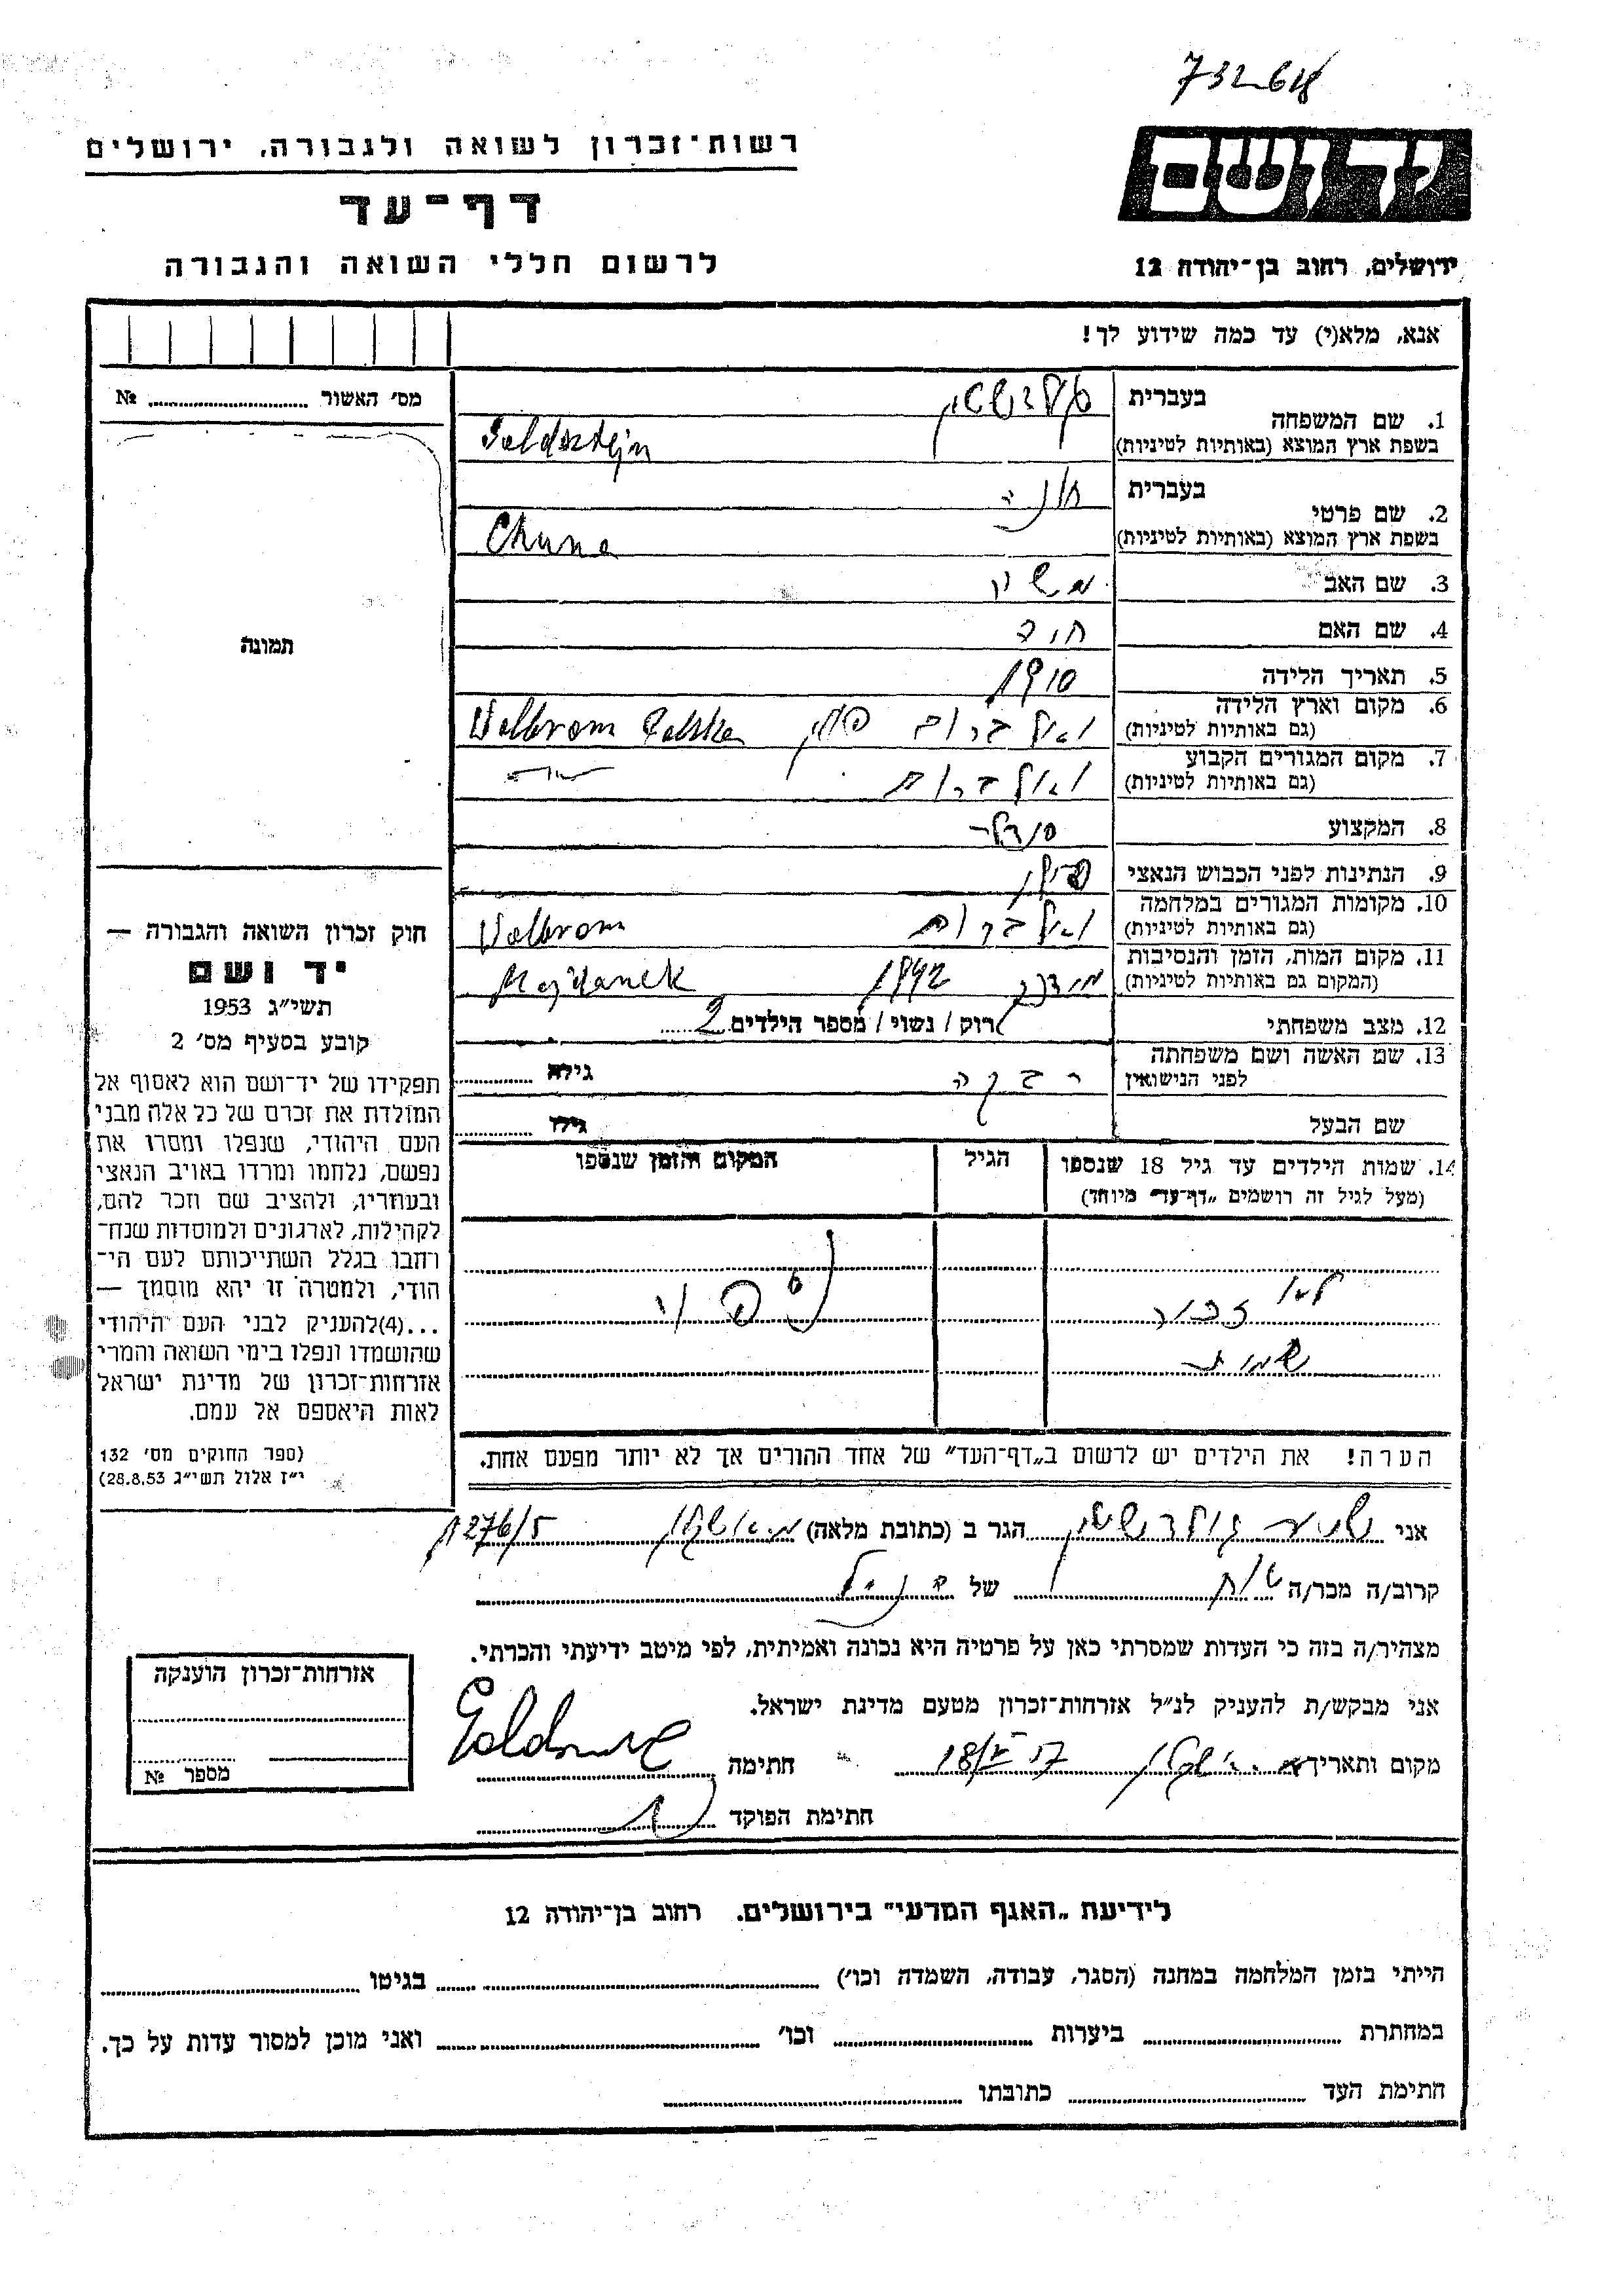 732618
יד ושם
רשות־זכרון לשואה ולגבורה, ירושלים
דף־עד
לרשום חללי השואה והגבורה
ירושלים, רחוב בן־יהודה 12
אנא, מלא(י) עד כמה שידוע לך!
מס׳ האשור № ........
תמונה
1. שם המשפחה
בעברית גולדשטיין
בשפת ארץ המוצא (באותיות לטיניות) Goldsztejn
2. שם פרטי
בעברית חונה
בשפת ארץ המוצא (באותיות לטיניות) Chuna
3. שם האב
4. שם האם
5. תאריך הלידה 1910
6. מקום וארץ הלידה וואלברום פולין Volbrom Polska
(גם באותיות לטיניות)
7. מקום המגורים הקבוע וואלברום
(גם באותיות לטיניות)
8. המקצוע סנדלר
9. הנתינות לפני הכבוש הנאצי פולין
10. מקומות המגורים במלחמה וואלברום Volbrom
(גם באותיות לטיניות)
11. מקום המות, הזמן והנסיבות מיידנק 1942 Majdanek
(המקום גם באותיות לטיניות)
12. מצב משפחתי רוק / נשוי / מספר הילדים 2
13. שם האשה ושם משפחתה רבקה גילה ........
לפני הנישואין
שם הבעל גילו ........
14. שמות הילדים עד גיל 18 שנספו הגיל המקום והזמן שנספו
(מעל לגיל זה רושמים „דף־עד״ מיוחד)
לא
זכור נספו
שמות
הערה! את הילדים יש לרשום ב„דף־העד״ של אחד ההורים אך לא יותר מפעם אחת.
חוק זכרון השואה והגבורה —
יד ושם
תשי״ג 1953
קובע בסעיף מס׳ 2
תפקידו של יד־ושם הוא לאסוף אל
המולדת את זכרם של כל אלה מבני
העם היהודי, שנפלו ומסרו את
נפשם, נלחמו ומרדו באויב הנאצי
ובעוזריו, ולהציב שם וזכר להם,
לקהילות, לארגונים ולמוסדות שנח־
רחבו בגלל השתייכותם לעם הי־
הודי, ולמטרה זו יהא מוסמך —
...(4)להעניק לבני העם היהודי
שהושמדו ונפלו בימי השואה והמרי
אזרחות־זכרון של מדינת ישראל
לאות היאספם אל עמם.
(ספר החוקים מס׳ 132
י״ז אלול תשי״ג 28.8.53)
אני גולדשטיין הגר ב (כתובת מלאה) 276/5
קרוב/ה מכר/ה של הנ״ל
מצהיר/ה בזה כי העדות שמסרתי כאן על פרטיה היא נכונה ואמיתית, לפי מיטב ידיעתי והכרתי.
אני מבקש/ת להעניק לנ״ל אזרחות־זכרון מטעם מדינת ישראל.
מקום ותאריך חתימה
חתימת הפוקד
אזרחות־זכרון הוענקה
מספר №
לידיעת „האגף המדעי״ בירושלים. רחוב בן־יהודה 12
הייתי בזמן המלחמה במחנה (הסגר, עבודה, השמדה וכו׳) ........ בגיטו ........
במחתרת ........ ביערות ........ וכו׳ ........ ואני מוכן למסור עדות על כך.
חתימת העד ........ כתובתו ........